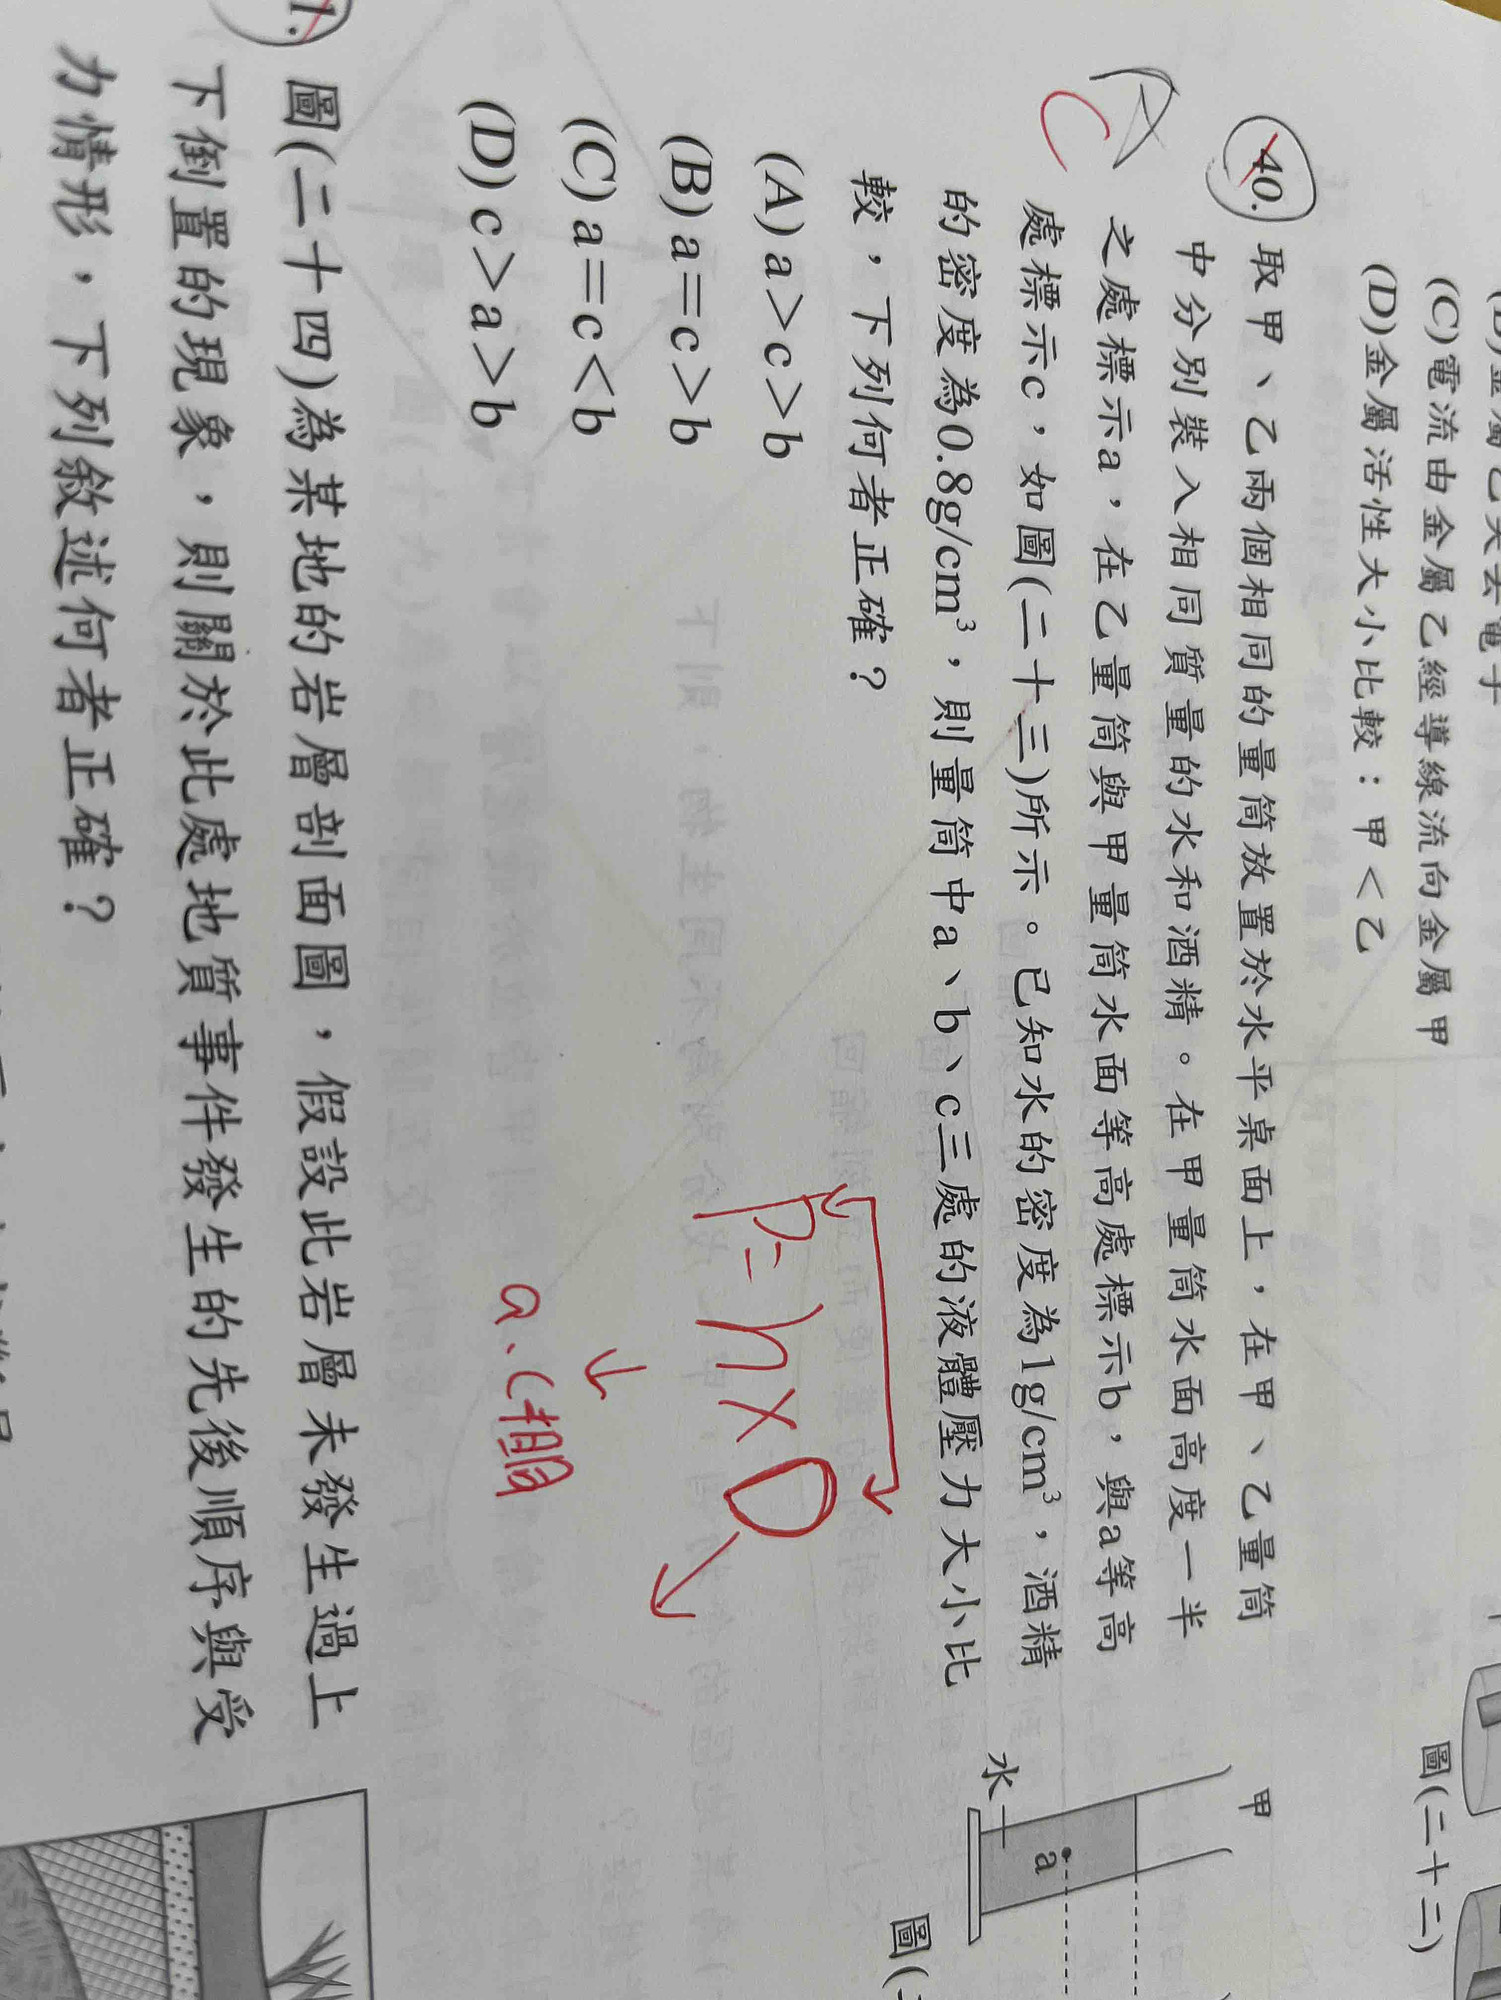 (C)電流由金屬乙經導線流向金屬甲
(D)金屬活性大小比較：甲＜乙
圖(二十二)
A
C
40. 取甲、乙兩個相同的量筒放置於水平桌面上，在甲、乙量筒
中分別裝入相同質量的水和酒精。在甲量筒水面高度一半
之處標示a，在乙量筒與甲量筒水面等高處標示b，與a等高
處標示c，如圖(二十三)所示。已知水的密度為1g/cm³，酒精
的密度為0.8g/cm³，則量筒中a、b、c三處的液體壓力大小比
較，下列何者正確？
(A)a＞c＞b
(B)a＝c＞b
(C)a＝c＜b
(D)c＞a＞b
P=h×D
a、c相同
甲
a
水
圖(
1. 圖(二十四)為某地的岩層剖面圖，假設此岩層未發生過上
下倒置的現象，則關於此處地質事件發生的先後順序與受
力情形，下列敘述何者正確？